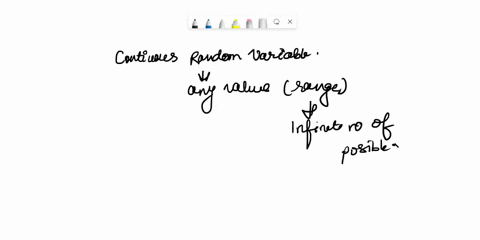 Continues Random Variable.
any value (range)
Infinite no of
posible